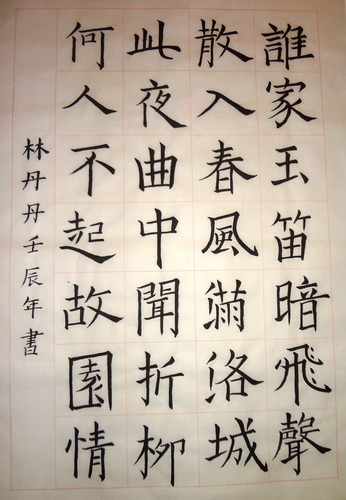 誰家玉笛暗飛聲
散入春風滿洛城
此夜曲中聞折柳
何人不起故園情
林丹丹壬辰年書